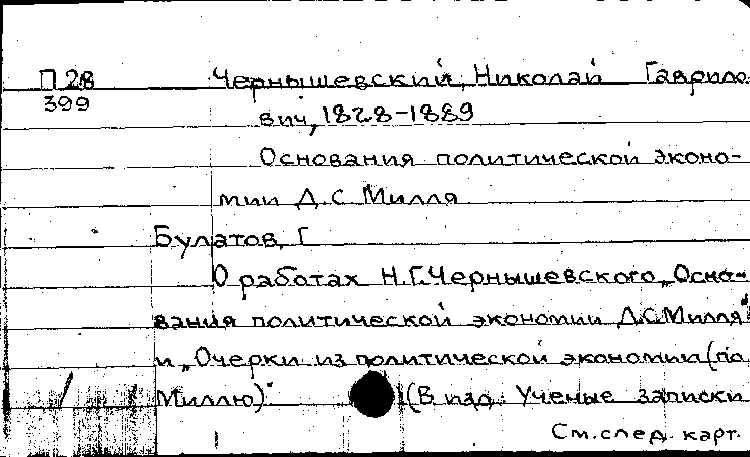 П 28 Чернышевский, Николай Гаврило-
399
вич, 1828-1889
Основания политической эконо-
мии Д.С. Милля
Булатов, Г.
О работах Н.Г.Чернышевского „Осно-
вания политической экономии Д.С.Милля"
и „Очерки из политической экономии (по
Миллю)" (В изд. Ученые записки
См. след. карт.